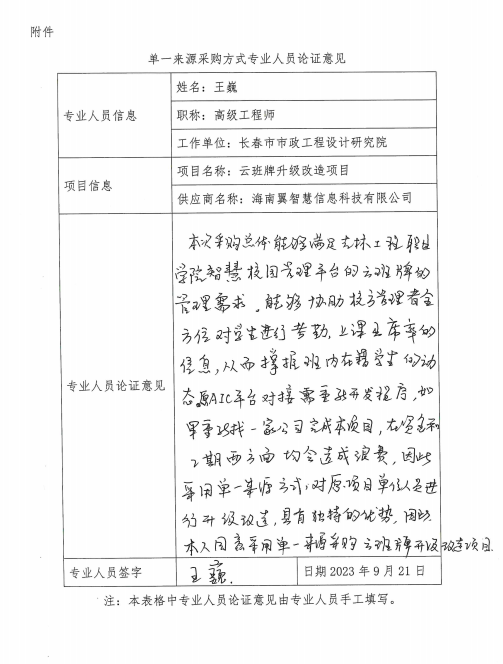 附件
单一来源采购方式专业人员论证意见
专业人员信息
姓名：王巍
职称：高级工程师
工作单位：长春市市政工程设计研究院
项目信息
项目名称：云班牌升级改造项目
供应商名称：海南翼智慧信息科技有限公司
专业人员论证意见
本次采购总体能够满足吉林工程职业
学院智慧校园管理平台的云班牌的
管理需求。能够协助校方管理者全
方位对学生进行考勤,上课出席率的
信息,从而掌握班内在籍学生的动
态。原AIC平台对接需重新开发程序,如
果重找一家公司完成本项目,在资金和
工期两方面均会造成浪费,因此
采用单一来源方式,对原项目单位人员进
行升级改造,具有独特的优势,因此
本人同意采用单一来源采购云班牌升级改造项目.
专业人员签字
王巍.
日期 2023 年 9 月 21 日
注：本表格中专业人员论证意见由专业人员手工填写。